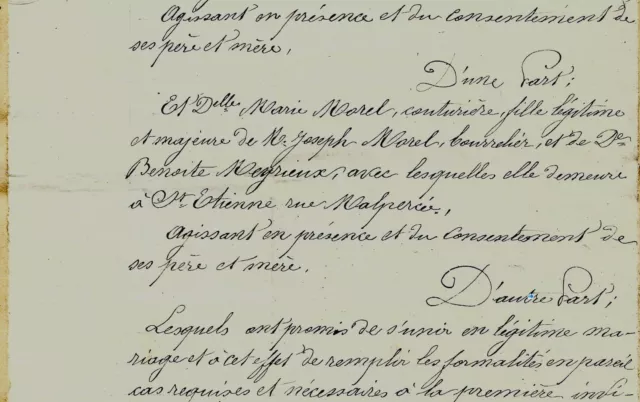 Agissant en présence et du consentement de
ses père et mère,
D'une Part;
Et Delle Marie Morel, couturière, fille légitime
et majeure de Mr. Joseph Morel, bourrelier, et de De
Benoite Meyrieux, avec lesquelles elle demeure
à St. Etienne rue Malpercée,
Agissant en présence et du consentement de
ses père et mère.
D'autre Part;
Lesquels ont promis de s'unir en légitime ma-
riage et à cet effet de remplir les formalités en pareil
cas requises et nécessaires à la première invi-